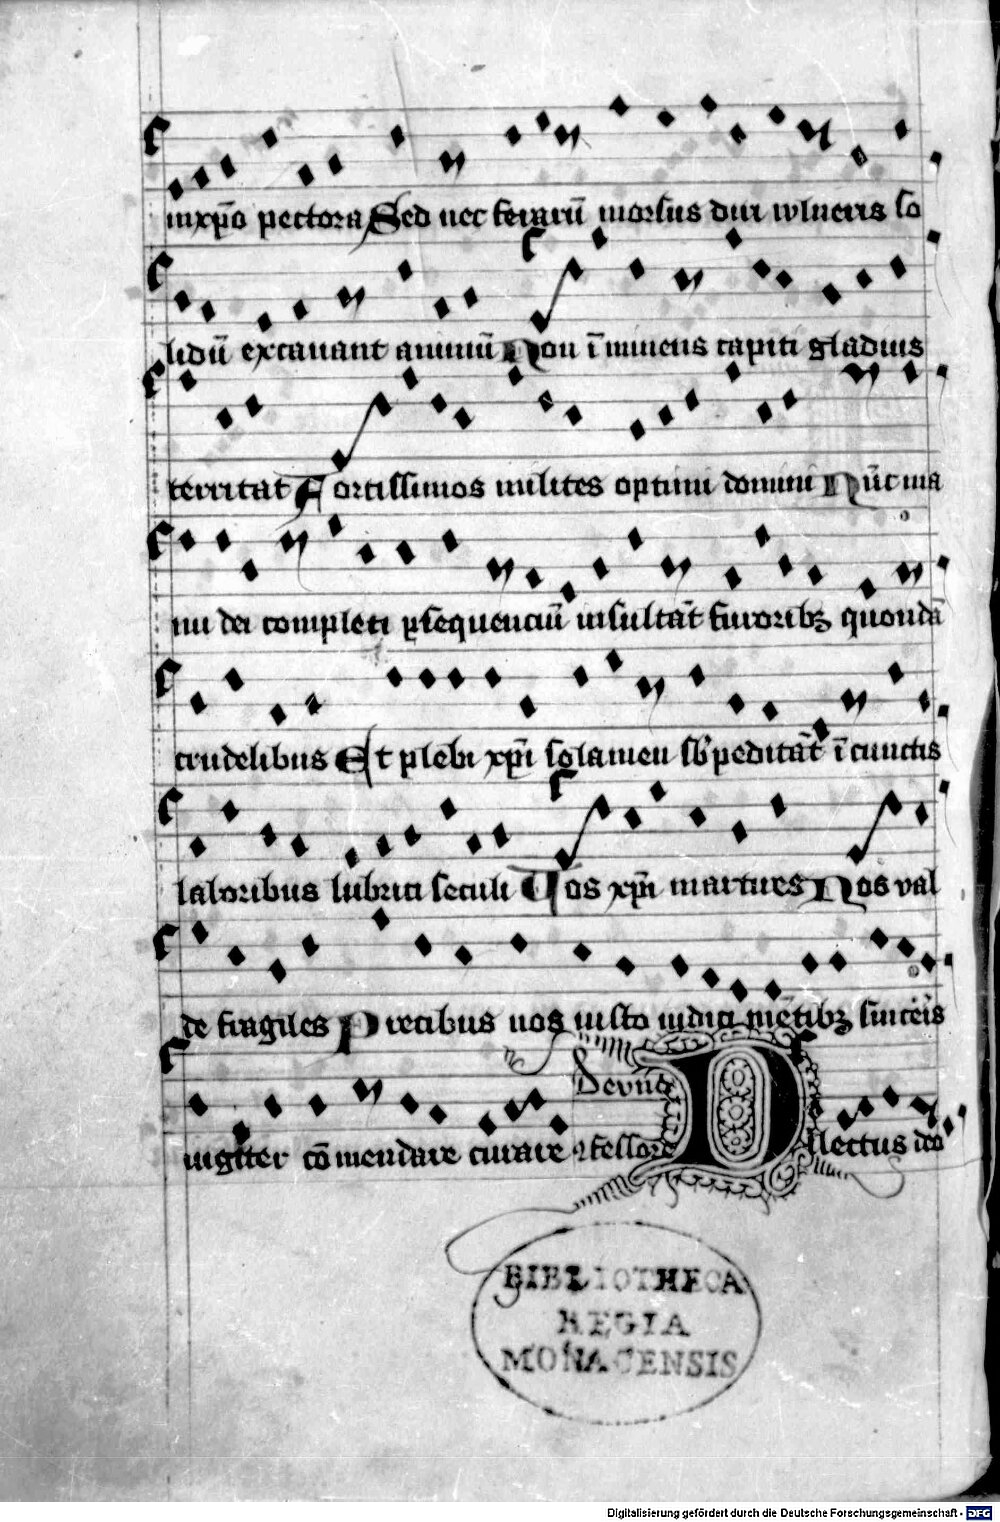 in xp̄o pectora Sed nec ferarū morsus diri wlneris so
lidū excavant animū Non īminens capiti gladius
territat Fortissimos milites optimi domini Nūc ma
nu dei completi ꝑsequenciū insultāt furoribꝫ quondā
crudelibus Et plebi xp̄i solamen sb̄peditāt ī cunctis
laboribus lubrici seculi Vos xp̄i martires Nos val
de fragiles Precibus nos iusto iudici mētibꝫ sinceris
iugiter cōmendare curare ꝯfessore De vno Dilectus deo
BIBLIOTHECA
REGIA
MONACENSIS
Digitalisierung gefördert durch die Deutsche Forschungsgemeinschaft - DFG